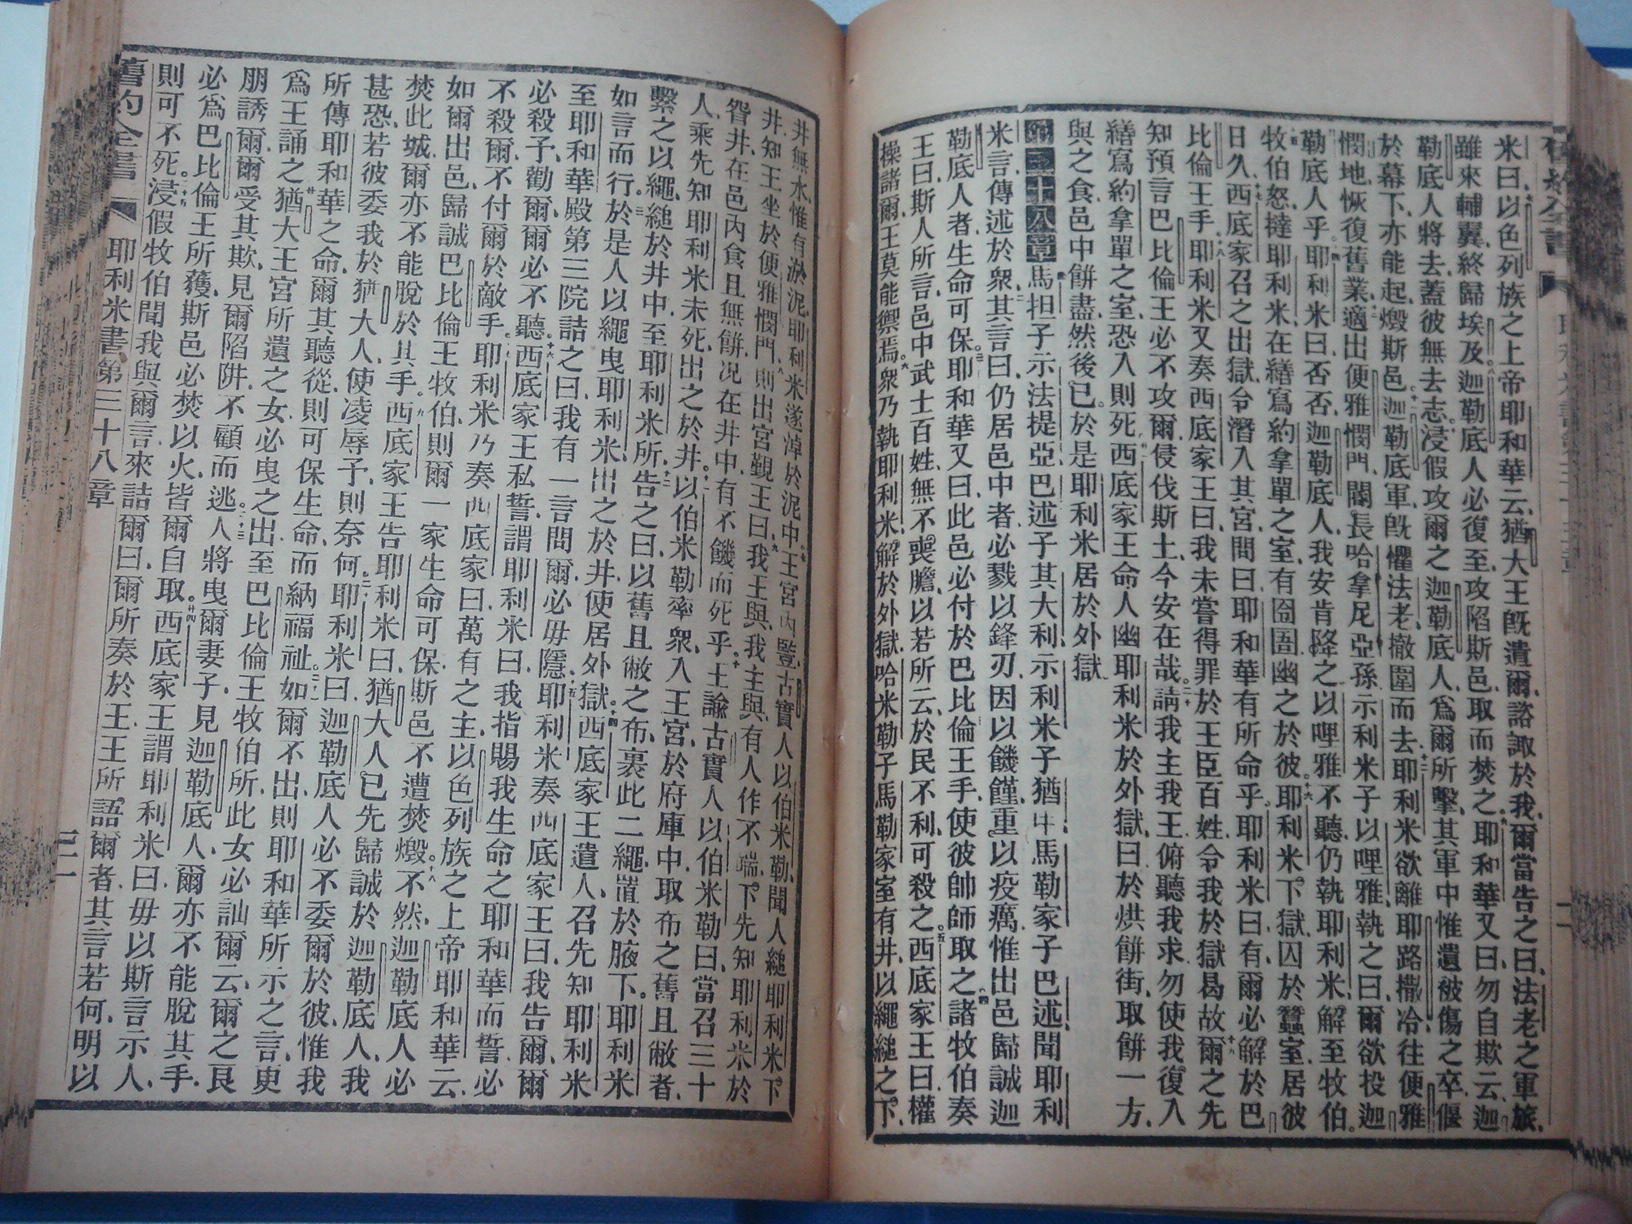 米曰、以色列族之上帝耶和華云、猶大王旣遺爾、諮諏於我、爾當告之曰、法老之軍旅、
雖來輔翼、終歸埃及、迦勒底人必復至、攻陷斯邑、取而焚之、耶和華又曰、勿自欺云、迦
勒底人將去、蓋彼無去志、浸假攻爾之迦勒底人、爲爾所擊、其軍中惟遺被傷之卒、偃
於幕下、亦能起燬斯邑。迦勒底軍旣懼法老、撤圍而去、耶利米欲離耶路撒冷、往便雅
憫地、恢復舊業、適出便雅憫門、閽長哈拿尼亞孫、示利米子以哩雅執之曰、爾欲投迦
勒底人乎、耶利米曰、否否、迦勒底人、我安肯降之、以哩雅不聽、仍執耶利米、解至牧伯。
牧伯怒、撻耶利米、在繕寫約拿單之室、有囹圄、幽之於彼、耶利米下獄、囚於蠶室、居彼
日久、西底家召之出獄、令潛入其宮、問曰、耶和華有所命乎、耶利米曰、有、爾必解於巴
比倫王手、耶利米又奏西底家王曰、我未嘗得罪於王臣百姓、令我於獄曷故、爾之先
知預言巴比倫王必不攻爾、侵伐斯土、今安在哉、請我主我王、俯聽我求、勿使我復入
繕寫約拿單之室、恐入則死、西底家王命人幽耶利米於外獄、曰、於烘餠街、取餠一方、
與之食、邑中餠盡然後已、於是耶利米居於外獄。
第三十八章 馬担子示法提亞、巴述子其大利、示利米子猶甲、馬勒家子巴述、聞耶利
米言、傳述於衆、其言曰、仍居邑中者、必戮以鋒刃、因以饑饉、重以疫癘、惟出邑歸誠迦
勒底人者、生命可保、耶和華又曰、此邑必付於巴比倫王手、使彼帥師取之、諸牧伯奏
王曰、斯人所言、邑中武士百姓、無不喪膽、以若所云、於民不利、可殺之、西底家王曰、權
操諸爾、王莫能禦焉、衆乃執耶利米、解於外獄、哈米勒子馬勒家室有井、以繩縋之下、
井無水、惟有淤泥、耶利米遂淖於泥中、王宮內豎、古實人以伯米勒、聞人縋耶利米下
井、知王坐於便雅憫門、則出宮覲王曰、我王與、我主與、有人作不端、下先知耶利米於
眢井、在邑內食且無餠、况在井中、有不饑而死乎、王諭古實人以伯米勒曰、當召三十
人、乘先知耶利米未死、出之於井、以伯米勒率衆、入王宮、於府庫中、取布之舊且敝者、
繫之以繩、縋於井中、至耶利米所、告之曰、以舊且敝之布、裹此二繩、罥於腋下、耶利米
如言而行、於是人以繩曳耶利米、出之於井、使居外獄、西底家王遣人、召先知耶利米
至耶和華殿第三院、詰之曰、我有一言問爾、必毋隱、耶利米奏西底家王曰、我告爾、爾
必殺予、勸爾、爾必不聽、西底家王私誓、謂耶利米曰、我指賜我生命之耶和華而誓、必
不殺爾、不付爾於敵手、耶利米乃奏西底家曰、萬有之主、以色列族之上帝耶和華云、
如爾出邑、歸誠巴比倫王牧伯、則爾一家生命可保、斯邑不遭焚燬、不然、迦勒底人必
焚此城、爾亦不能脫於其手、西底家王告耶利米曰、猶大人已先歸誠於迦勒底人、我
甚恐、若彼委我於猶大人、使凌辱予、則奈何、耶利米曰、迦勒底人必不委爾於彼、惟我
所傳耶和華之命、爾其聽從、則可保生命、而納福祉、如爾不出、則耶和華所示之言、更
爲王誦之、猶大王宮所遺之女、必曳之出、至巴比倫王牧伯所、此女必訕爾云、爾之良
朋誘爾、爾受其欺、見爾陷阱、不顧而逃、人將曳爾妻子、見迦勒底人、爾亦不能脫其手、
必爲巴比倫王所獲、斯邑必焚以火、皆爾自取、西底家王謂耶利米曰、毋以斯言示人、
則可不死、浸假牧伯聞我與爾言、來詰爾曰、爾所奏於王、王所語爾者、其言若何、明以
舊約全書 耶利米書 第三十八章 三一